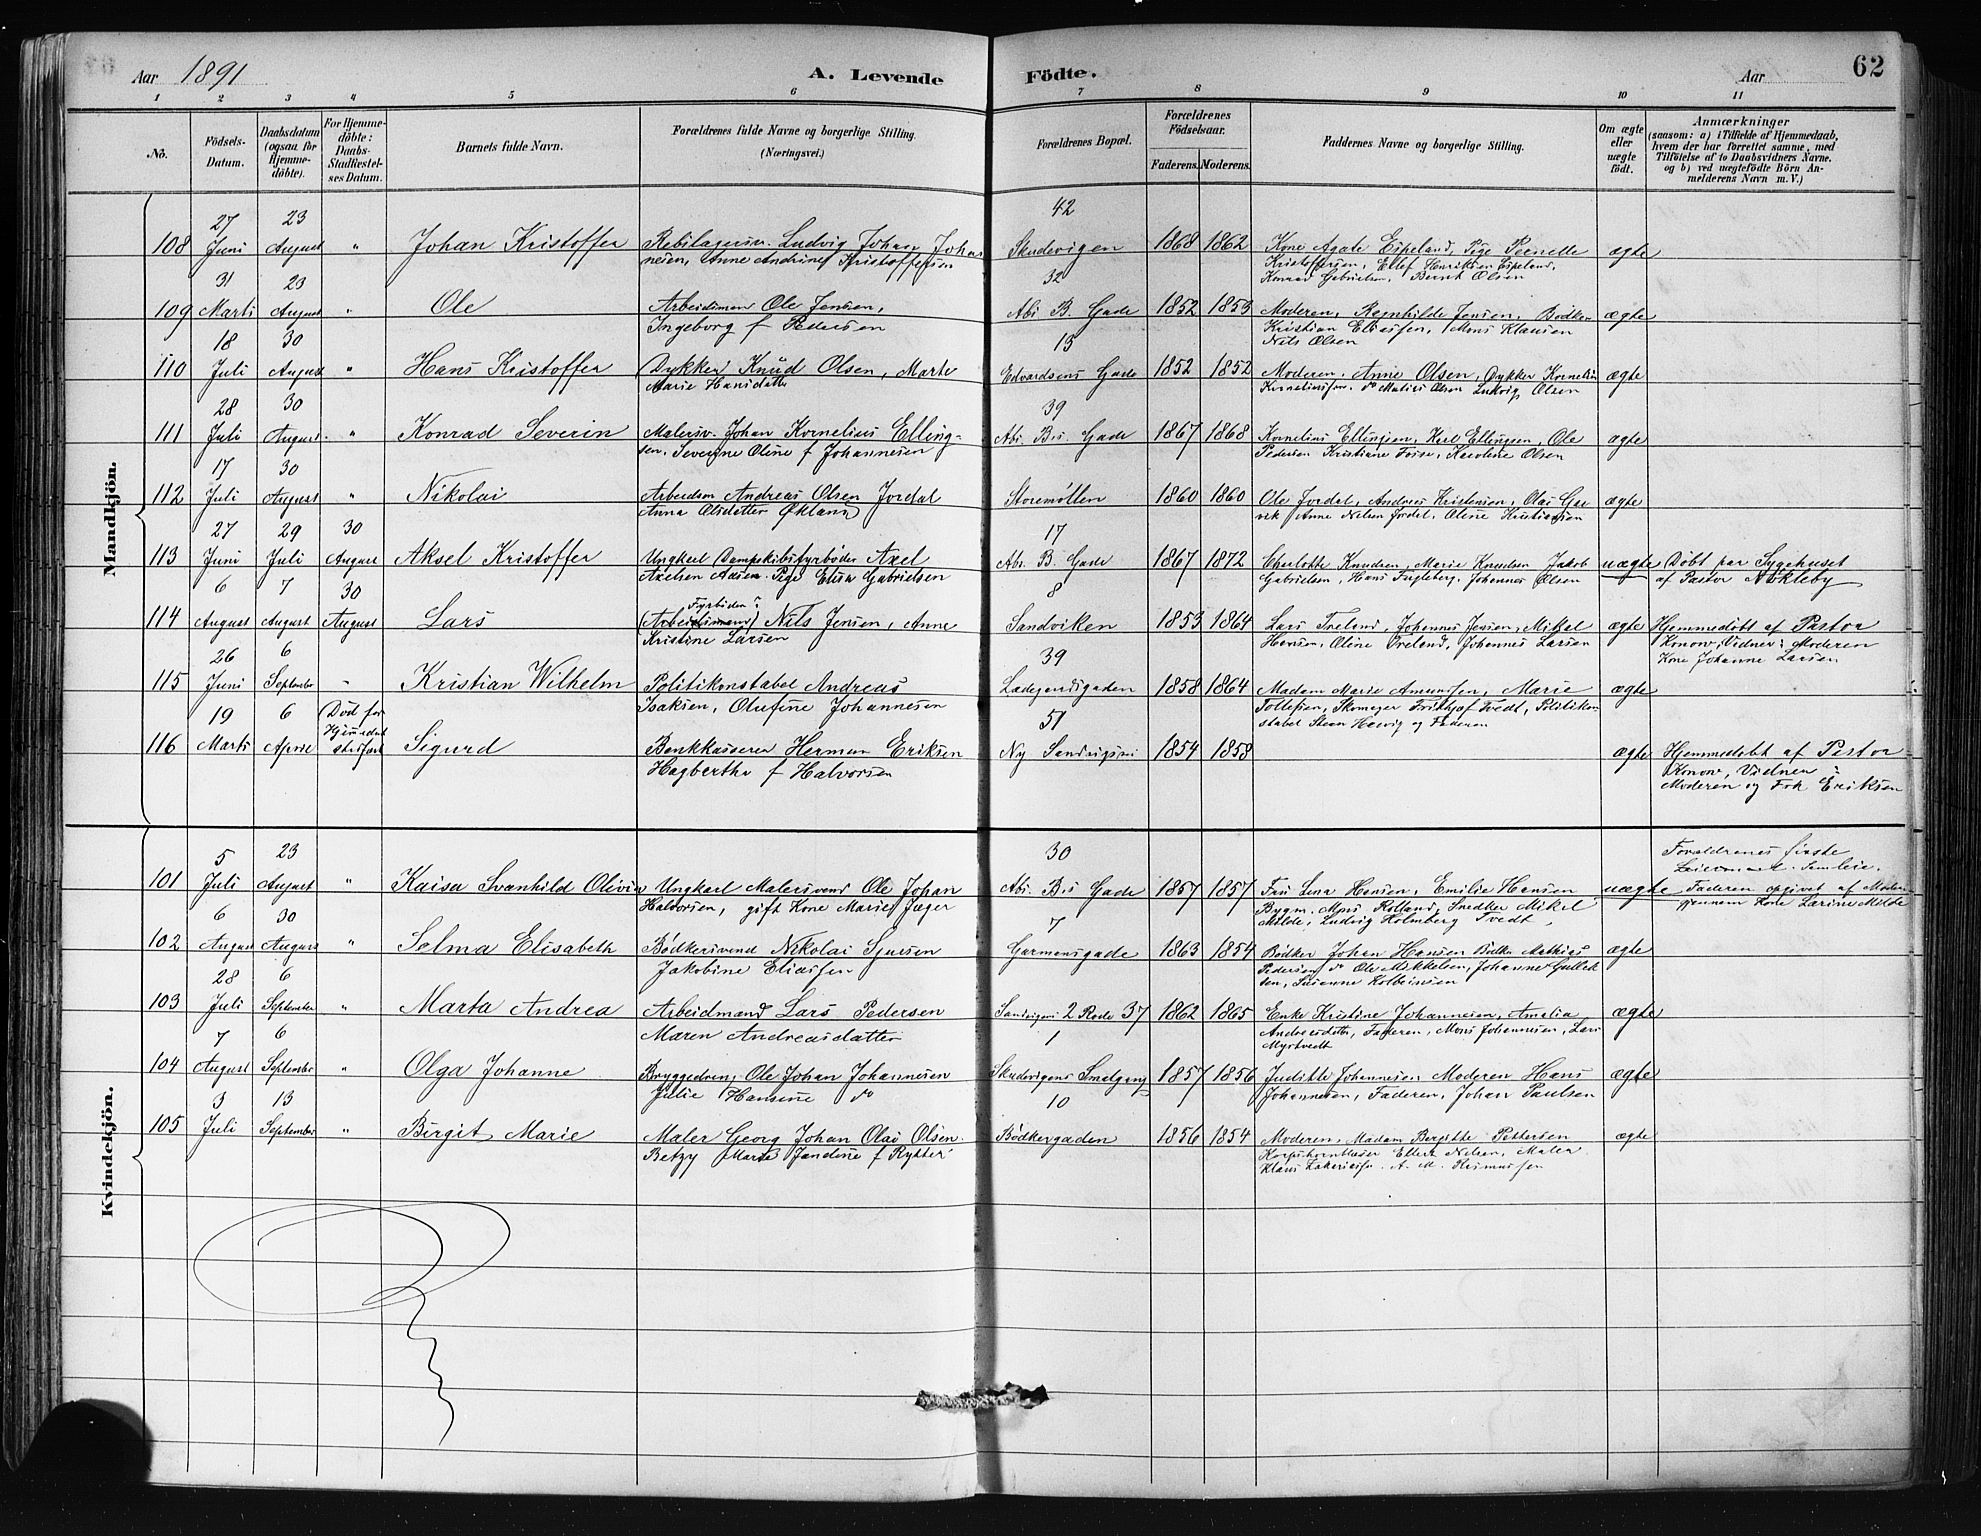 Aar 1891
A. Levende
Födte.
Aar
62
1 2 3 4 5 6 7 8 9 10 11
No.
Födsels-
Datum.
Daabsdatum
(ogsaa for
Hjemme-
döbte).
For Hjemme-
döbte:
Daabs-
Stadfæstel-
ses Datum.
Barnets fulde Navn.
Forældrenes fulde Navne og borgerlige Stilling.
(Næringsvei.)
Forældrenes Bopæl.
Forældrenes
Födselsaar.
Faderens. Moderens.
Faddernes Navne og borgerlige Stilling.
Om ægte
eller
uægte
födt.
Anmærkninger
(saasom: a) i Tilfælde af Hjemmedaab,
hvem der har forrettet samme, med
Tilföielse af to Daabsvidners Navne.
og b) ved uægtefödte Börn An-
melderens Navn m. V.)
Mandkjön.
27 23 42
108 Juni August " Johan Kristoffer Ludvig Johan Johan Skudevigen 1868 1862 Kone Agate Espeland, Pige Pernelle ægte
nesen, Anne Andrine Kristoffersen Kristoffersen, Ellef Henriksen Espeland,
Konrad Gabrielsen, Bernt Olsen
31 23 32
109 Marts August " Ole Arbeidsmand Ole Jensen, Abs. B. Gade 1852 1853 Moderen, Ragnhilde Jensen, Bødker ægte
Ingeborg f Pedersen Kristian Eliassen, Mons Klausen
Nils Olsen
18 30 13
110 Juli August " Hans Kristoffer Dykker Knud Olsen, Marte Edvardsens Gade 1852 1852 Moderen, Anne Olsen, Dykker Kornelius ægte
Marie Hansdatter Korneliussen, do Matias Olsen Ludvig Olsen
28 30 39
111 Juli August " Konrad Severin Malersv. Johan Kornelius Elling- Abs. Bs. Gade 1867 1868 Kornelius Ellingsen, Karl Ellingsen, Ole ægte
sen, Severine Oline f Johannesen Pedersen Kristiane Fosse, Karoline Olsen
17 30
112 Juli August " Nikolai Arbeidsm Andreas Olsen Jordal Storemøllen 1860 1860 Ole Jordal, Andreas Kristensen, Olai ægte
Anna Olsdatter Økland Anne Nilsen Jordal, Oline Kristiansen
27 29 30 17
113 Juni Juli August Aksel Kristoffer Ungkarl Dampskibsfyrbøder Axel Abs. B. Gade 1867 1872 Charlotte Knudsen, Marie Knudsen Jakob uægte Døbt paa Sygehuset
Axelsen Aasen. Pige Elisa Gabrielsen Gabrielsen, Hans Fugleberg, Johannes Olsen af Pastor Askleby
6 7 30 8
Fyrbøder
114 August August August Lars (Arbeidsmand) Nils Jensen, Anne Sandviken 1853 1864 Lars Treland, Johannes Jensen, Mikal ægte Hjemmedøbt af Pastor
Kristine Larsen Hansen, Oline Treland, Johannes Larsen Konow, Vidner: Moderen
Kone Johanne Larsen
26 6 39
115 Juni September " Kristian Wilhelm Politikonstabel Andreas Ladegaardsgaden 1858 1864 Madam Marie Amundsen, Marie ægte
Isaksen, Olufine Johannesen Tollefsen, Skomager Frithjof Tvedt, Politikon
stabel Steen Hauig og Faderen
19 6 Død før 51
Hjemmedaab
116 Marts April Sigurd Bankkasserer Herman Eriksen Ny Sandvigsvei 1854 1858 ægte Hjemmedøbt af Pastor
Hagbertha f Halvorsen Konow, Vidner:
Moderen og Frk Eriksen
Kvindekjön.
5 23 30
Forældrenes første
Leiermaal.
101 Juli August " Kaisa Svanhild Olivia Ungkarl Malersvend Ole Johan Abs. Bs Gade 1857 1857 Fru Lina Hansen, Emilie Hansen uægte Faderen opgivet af Moderen
Halvorsen, gift Kone Marie Jæger Bygm. Mons Rolland, Snedker Mikal gjennem Larine Milde
Milde, Ludvig Holmberg Tvedt
6 30 7
102 August August " Selma Elisabeth Bødkersvend Nikolai Sjursen Garmansgade 1863 1854 Bødker Johan Hansen Bødker Mathias ægte
Jakobine Eliassen Pedersen do Ole Mikkelsen, Johanne Gullek
sen, Susanne Kolbeinsen
28 6
103 Juli September " Marta Andrea Arbeidmand Lars Pedersen Sandvigens 2 Rode 37 1862 1865 Enke Kristine Johannesen, Amalia ægte
Maren Andreasdatter Andreasdatter, Faderen, Mons Johannesen, Lars
Myrtvedt
7 6 1
104 August September " Olga Johanne Bryggedreng Ole Johan Johannesen Skudevigens Smalgang 1857 1856 Judithe Johannesen, Moderen Hans ægte
Julie Hansine do Johannesen, Faderen, Johan Paulsen
3 13 10
105 Juli September " Birgit Marie Maler Georg Johan Olai Olsen Bødkergaden 1856 1854 Moderen, Madam Bergitte Pettersen ægte
Betzy Marie Jandine f Rytter Ellert Nilsen, Maler
Klaus Zakariassn. A. M. Rasmussen